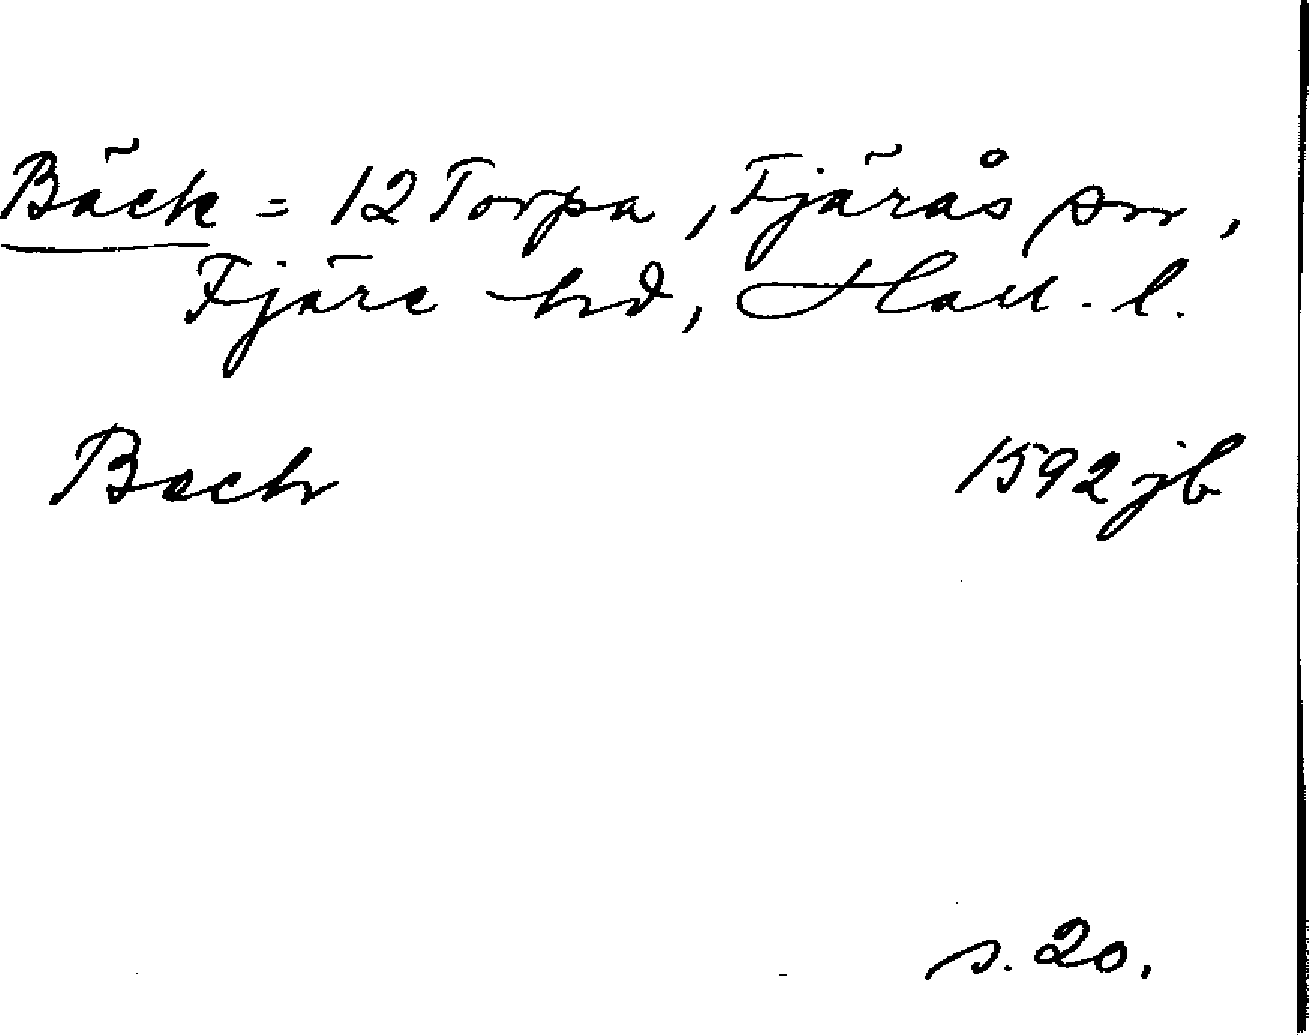 Bäck = 12 Torpa, Fjärås sn,
Fjäre hd, Hall. l.
Beck 1592 jb
s. 20.